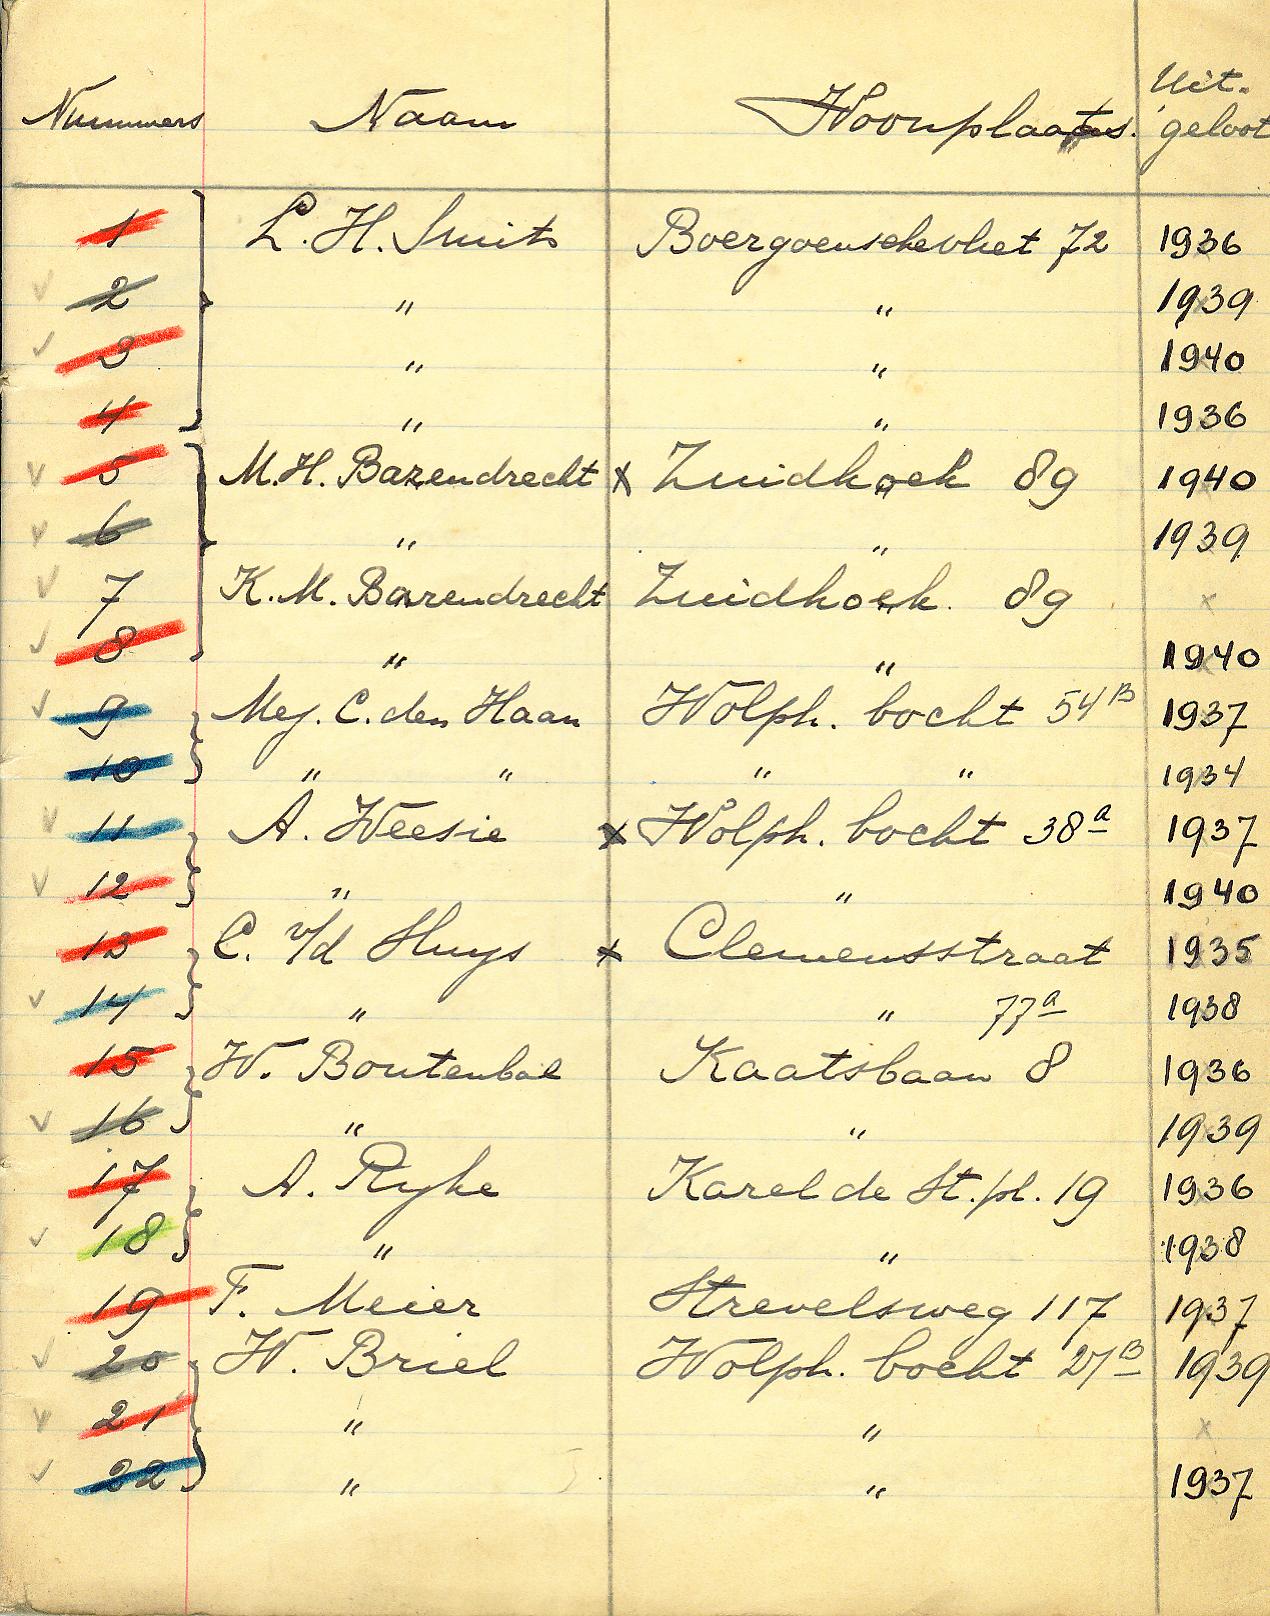 Nummers Naam Woonplaats. Uit-geloot
1 L. H. Smits Boergoenschevliet 72 1936
2 " " 1939
3 " " 1940
4 " " 1936
5 M. H. Barendrecht x Zuidhoek 89 1940
6 " " 1939
7 K. M. Barendrecht Zuidhoek. 89 x
8 " " 1940
9 Mej. C. den Haan Wolph. bocht 54B 1937
10 " " " " 1934
11 A. Weesie x Wolph. bocht 38a 1937
12 " " 1940
13 C. v/d Huys x Clemensstraat 1935
14 " " 77a 1938
15 W. Boutenbal Kaatsbaan 8 1936
16 " " 1939
17 A. Ryke Karel de St. pl. 19 1936
18 " " 1938
19 F. Meier Strevelsweg 117 1937
20 W. Briel Wolph. bocht 27B 1939
21 " " x
22 " " 1937